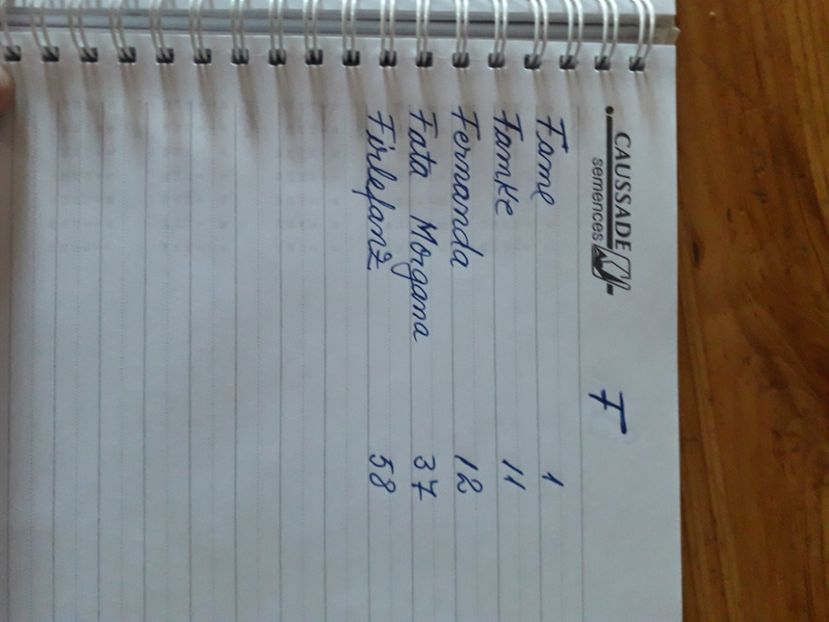 CAUSSADE
semences
F
Fame 1
Famke 11
Fernanda 12
Fata Morgana 37
Firlefanz 58